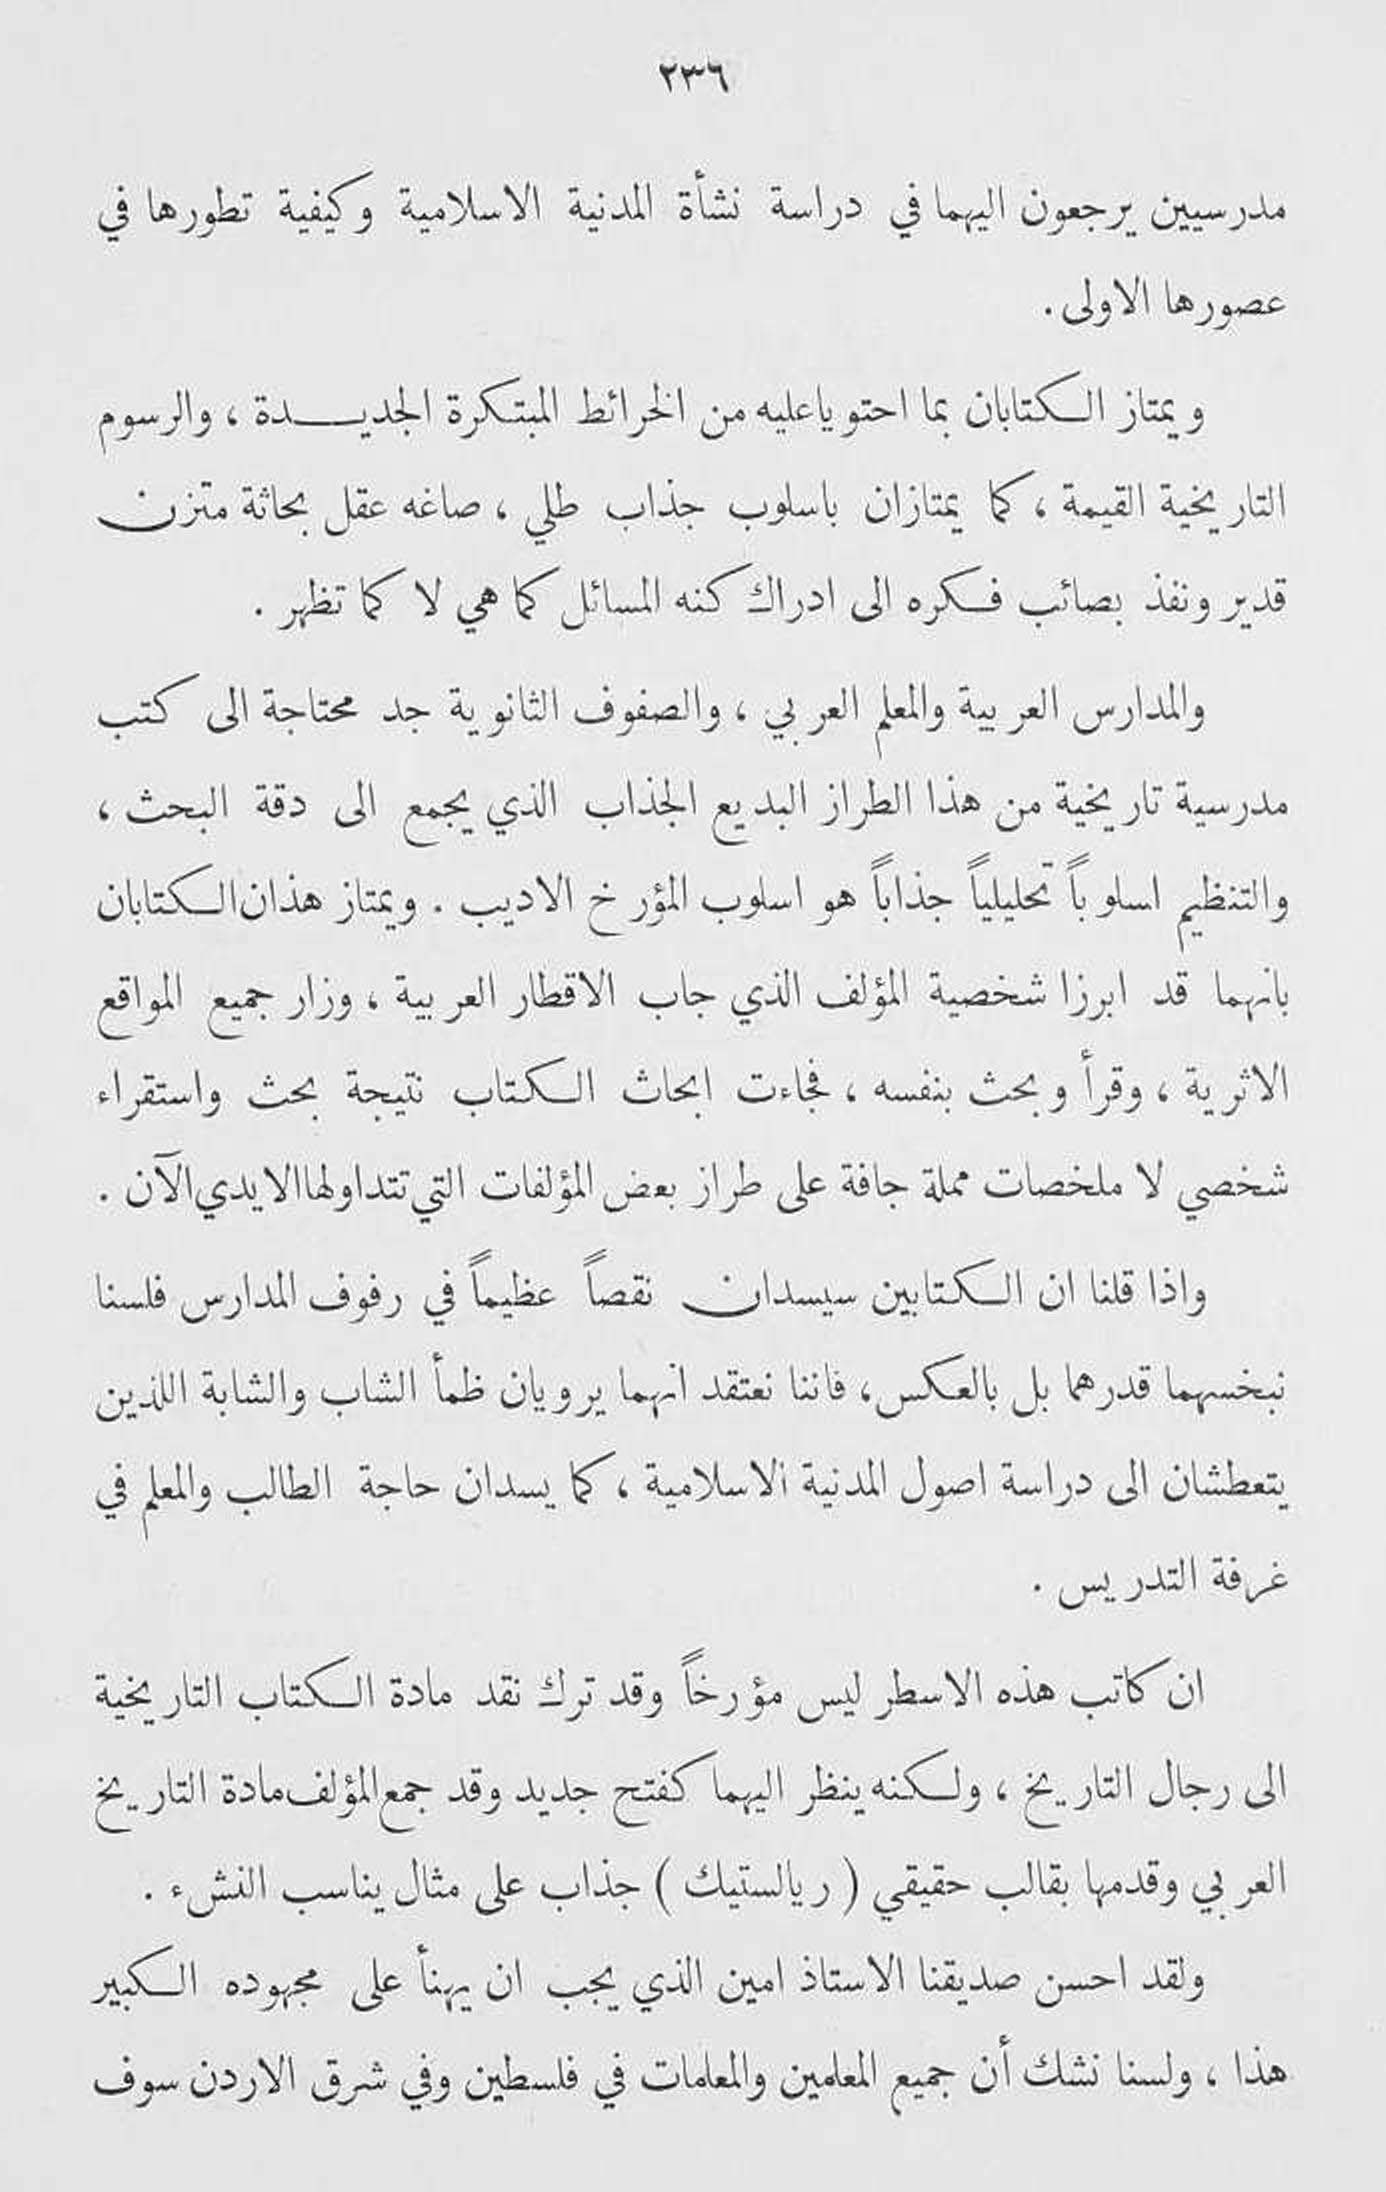 ٢٣٦
مدرسيين يرجعون اليهما في دراسة نشأة المدنية الاسلامية وكيفية تطورها في
عصورها الاولى .
ويمتاز الكتابان بما احتويا عليه من الخرائط المبتكرة الجديدة ، والرسوم
التاريخية القيمة ، كما يمتازان باسلوب جذاب طلي ، صاغه عقل بحاثة متزن
قدير ونفذ بصائب فكره الى ادراك كنه المسائل كما هي لا كما تظهر .
والمدارس العربية والمعلم العربي ، والصفوف الثانوية جد محتاجة الى كتب
مدرسية تاريخية من هذا الطراز البديع الجذاب الذي يجمع الى دقة البحث ،
والتنظيم اسلوباً تحليلياً جذاباً هو اسلوب المؤرخ الاديب . ويمتاز هذان الكتابان
بانهما قد ابرزا شخصية المؤلف الذي جاب الاقطار العربية ، وزار جميع المواقع
الاثرية ، وقرأ وبحث بنفسه ، فجاءت ابحاث الكتاب نتيجة بحث واستقراء
شخصي لا ملخصات مملة جافة على طراز بعض المؤلفات التي تتداولها الايدي الآن .
واذا قلنا ان الكتابين سيسدان نقصاً عظيماً في رفوف المدارس فلسنا
نبخسهما قدرهما بل بالعكس ، فاننا نعتقد انهما يرويان ظمأ الشاب والشابة اللذين
يتعطشان الى دراسة اصول المدنية الاسلامية ، كما يسدان حاجة الطالب والمعلم في
غرفة التدريس .
ان كاتب هذه الاسطر ليس مؤرخاً وقد ترك نقد مادة الكتاب التاريخية
الى رجال التاريخ ، ولكنه ينظر اليهما كفتح جديد وقد جمع المؤلف مادة التاريخ
العربي وقدمها بقالب حقيقي ( ريالستيك ) جذاب على مثال يناسب النشء .
ولقد احسن صديقنا الاستاذ امين الذي يجب ان يهنأ على مجهوده الكبير
هذا ، ولسنا نشك أن جميع المعلمين والمعلمات في فلسطين وفي شرق الاردن سوف